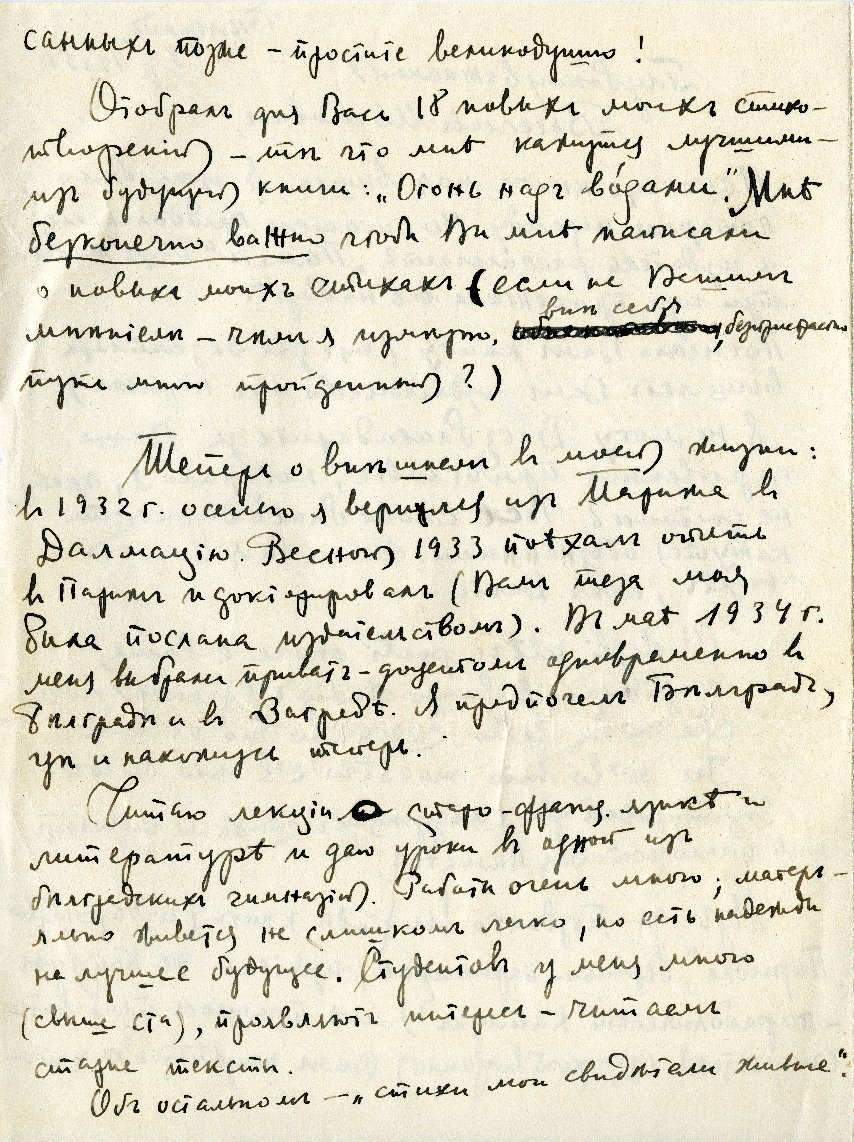 санныхъ позже – простите великодушно!
Отобралъ для Васъ 18 новыхъ моихъ стихо-
твореній – тѣ что мнѣ кажутся лучшими –
изъ будущей книги: „Огонь надъ во́дами". Мнѣ
безконечно важно чтобы Вы мнѣ написали
о новыхъ моихъ стихахъ (если не Вашимъ
внѣ себя
мнѣніемъ – чѣмъ я измѣрю, безпристрастно
путь мною пройденный?)
Теперь о внѣшнемъ въ моей жизни:
въ 1932 г. осенью я вернулся изъ Парижа въ
Далмацію. Весной 1933 поѣхалъ опять
въ Парижъ и докторировалъ (Вамъ теза моя
была послана издательствомъ). Въ маѣ 1934 г.
меня выбрали приватъ-доцентомъ одновременно въ
Бѣлградѣ и въ Загребѣ. Я предпочелъ Бѣлградъ,
гдѣ и нахожусь теперь.
Читаю лекціи о старо-франц. языкѣ и
литературѣ и даю уроки въ одной изъ
бѣлградскихъ гимназій. Работы очень много; матерь-
яльно живется не слишкомъ легко, но есть надежды
на лучшее будущее. Студентовъ у меня много
(свыше ста), проявляютъ интересъ – читаемъ
старые тексты.
Объ остальномъ – „стихи мои свидѣтели живые".